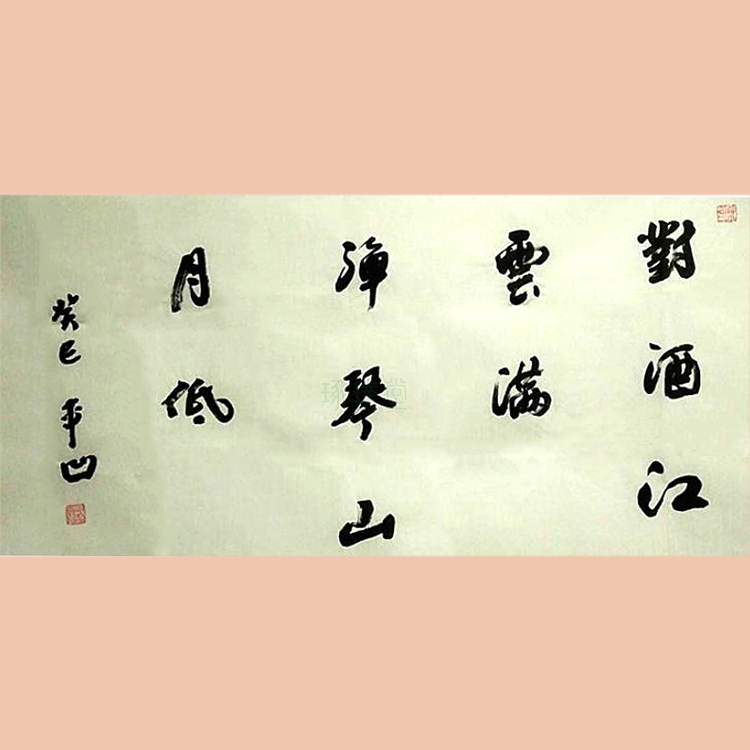 對酒江
雲滿
彈琴山
月低
癸巳 平凹